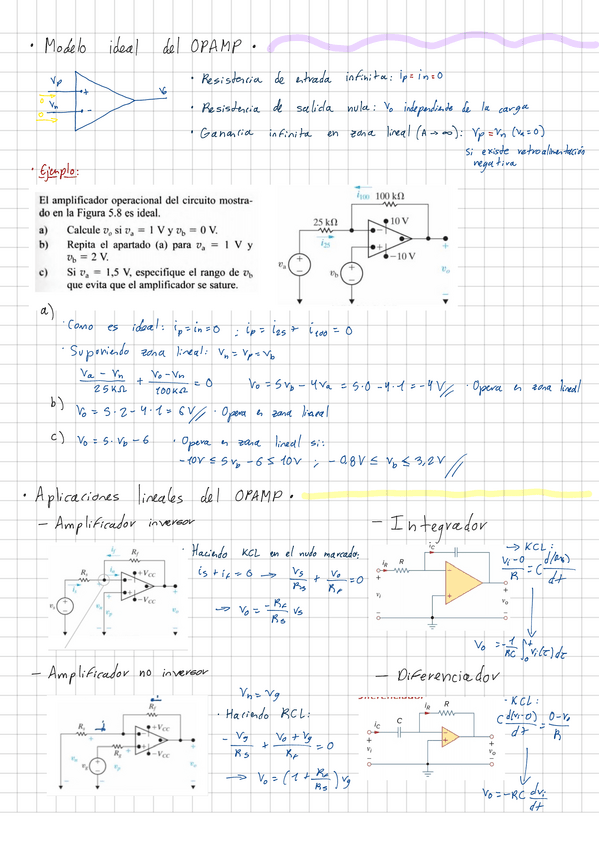 · Modelo ideal del OPAMP ·
Vp
Vn
+
-
Vo
· Resistencia de entrada infinita: ip = in = 0
· Resistencia de salida nula: Vo independiente de la carga
· Ganancia infinita en zona lineal (A → ∞): Vp = Vn (Vd = 0)
Si existe retroalimentación
negativa
· Ejemplo:
El amplificador operacional del circuito mostra-
do en la Figura 5.8 es ideal.
a) Calcule vo si va = 1 V y vb = 0 V.
b) Repita el apartado (a) para va = 1 V y
vb = 2 V.
c) Si va = 1,5 V, especifique el rango de vb
que evita que el amplificador se sature.
i100 100 kΩ
25 kΩ
i25
10 V
-10 V
va
vb
vo
a)
· Como es ideal: ip = in = 0 ; ip = i25 + i100 = 0
· Suponiendo zona lineal: Vn = Vp = Vb
(Va - Vn)/25KΩ + (Vo - Vn)/100KΩ = 0 Vo = 5Vb - 4Va = 5·0 - 4·1 = -4V// · Opera en zona lineal
b) Vo = 5·2 - 4·1 = 6V// · Opera en zona lineal
c) Vo = 5·Vb - 6 · Opera en zona lineal si:
-10V ≤ 5Vb - 6 ≤ 10V ; -0,8V ≤ Vb ≤ 3,2V//
· Aplicaciones lineales del OPAMP ·
- Amplificador inversor
Rf
Rs
+VCC
-VCC
vs
vo
· Haciendo KCL en el nudo marcado:
is + if = 0 → Vs/Rs + Vo/Rf = 0
→ Vo = -Rf/Rs Vs
- Integrador
iC
iR R
vi
vo
→ KCL:
(Vi - 0)/R = C d(0-Vo)/dt
Vo = -1/RC ∫0t Vi(τ) dτ
- Amplificador no inversor
Rf
Rs
Rg
+VCC
-VCC
vg
vo
Vn = Vg
· Haciendo KCL:
-Vg/Rs + (Vo + Vg)/Rf = 0
→ Vo = (1 + Rf/Rs) Vg
- Diferenciador
iR R
iC C
vi
vo
· KCL:
C d(Vi - 0)/dt = (0 - Vo)/R
Vo = -RC dVi/dt